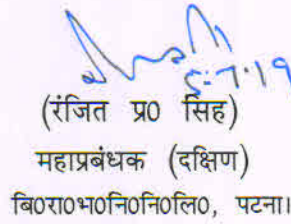 5.7.19
(रंजित प्र० सिह)
महाप्रबंधक (दक्षिण)
बि०रा०भ०नि०नि०लि०, पटना।